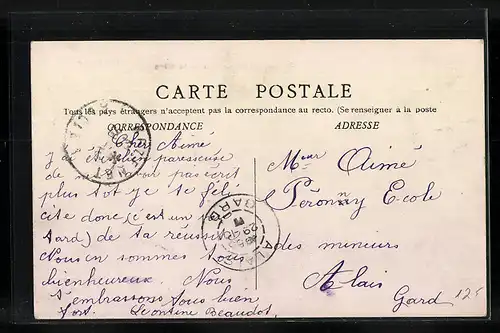 CARTE POSTALE
Tous les pays étrangers n'acceptent pas la correspondance au recto. (Se renseigner à la poste
CORRESPONDANCE
ADRESSE
Cher Aimé
J' bien paresseuse
de avoir pas écrit
plus tot je te féli
cite donc (c'est un p
tard) de ta réussite
Nous en sommes tous
bienheureux. Nous
t'embrassons tous bien
fort. Léontine Beaudot.
Mr Aimé
Péronny Ecole
des mineurs
Alais
Gard
GARD